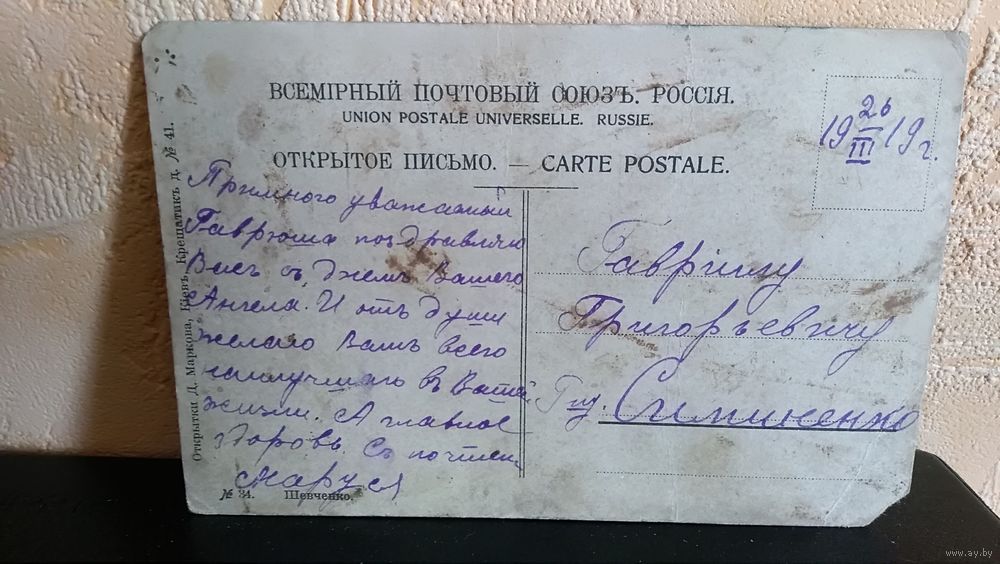 ВСЕМІРНЫЙ ПОЧТОВЫЙ СОЮЗЪ. РОССІЯ.
UNION POSTALE UNIVERSELLE. RUSSIE.
ОТКРЫТОЕ ПИСЬМО. — CARTE POSTALE.
26
19 III 19 г.
Примного уважаемый
Гаврюша поздравляю
Васъ съ Днемъ Вашего
Ангела. И отъ души
желаю Вамъ всего
наилучшаго въ Вашей
жизни. А главное
здоровъ. Съ почтен
Маруся
Григорьевичу
Гну.
Открытки Д. Маркова, Кіевъ, Крещатикъ д. № 41.
№ 34. Шевченко.
www.ay.by